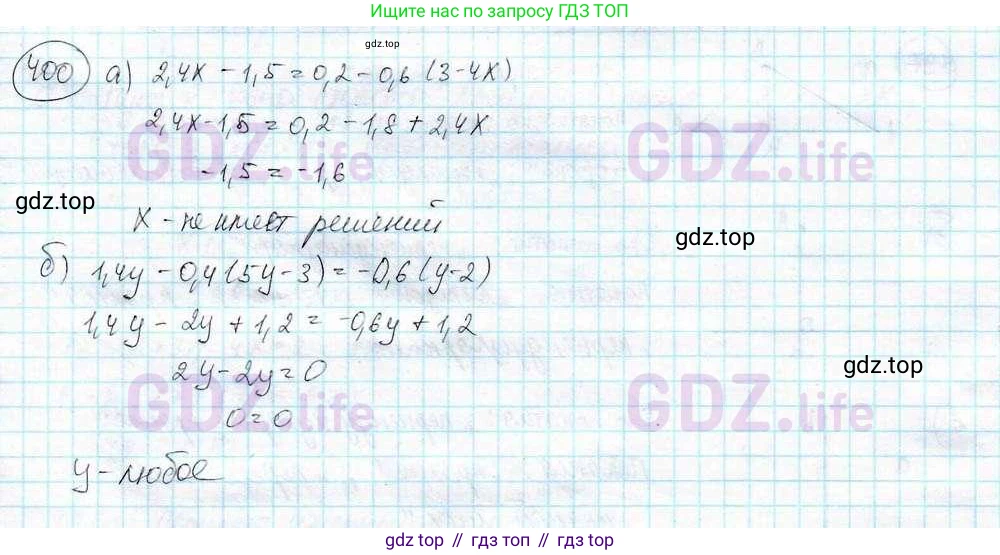 Ищите нас по запросу ГДЗ ТОП
gdz.top
400 а) 2,4x - 1,5 = 0,2 - 0,6 (3-4x)
2,4x - 1,5 = 0,2 - 1,8 + 2,4x
GDZ.life GDZ.life
-1,5 = -1,6
gdz.top
x - не имеет решений
gdz.top
б) 1,4y - 0,4(5y-3) = -0,6(y-2)
1,4y - 2y + 1,2 = -0,6y + 1,2
gdz.top
2y - 2y = 0
GDZ.life GDZ.life
0 = 0
y - любое
gdz.top // гдз топ // gdz.top